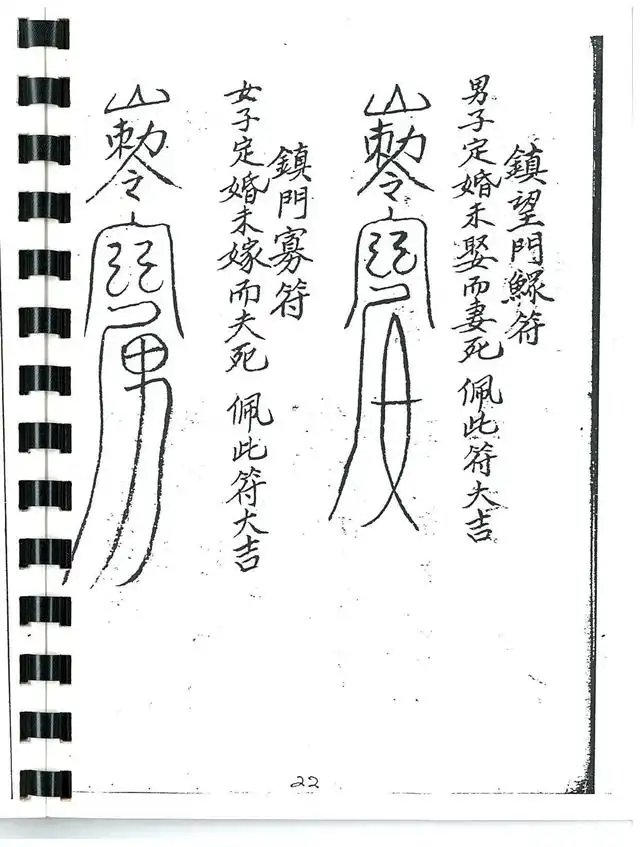 鎮望門鰥符
男子定婚未娶而妻死 佩此符大吉
勅令
鎮門寡符
女子定婚未嫁而夫死 佩此符大吉
勅令
22